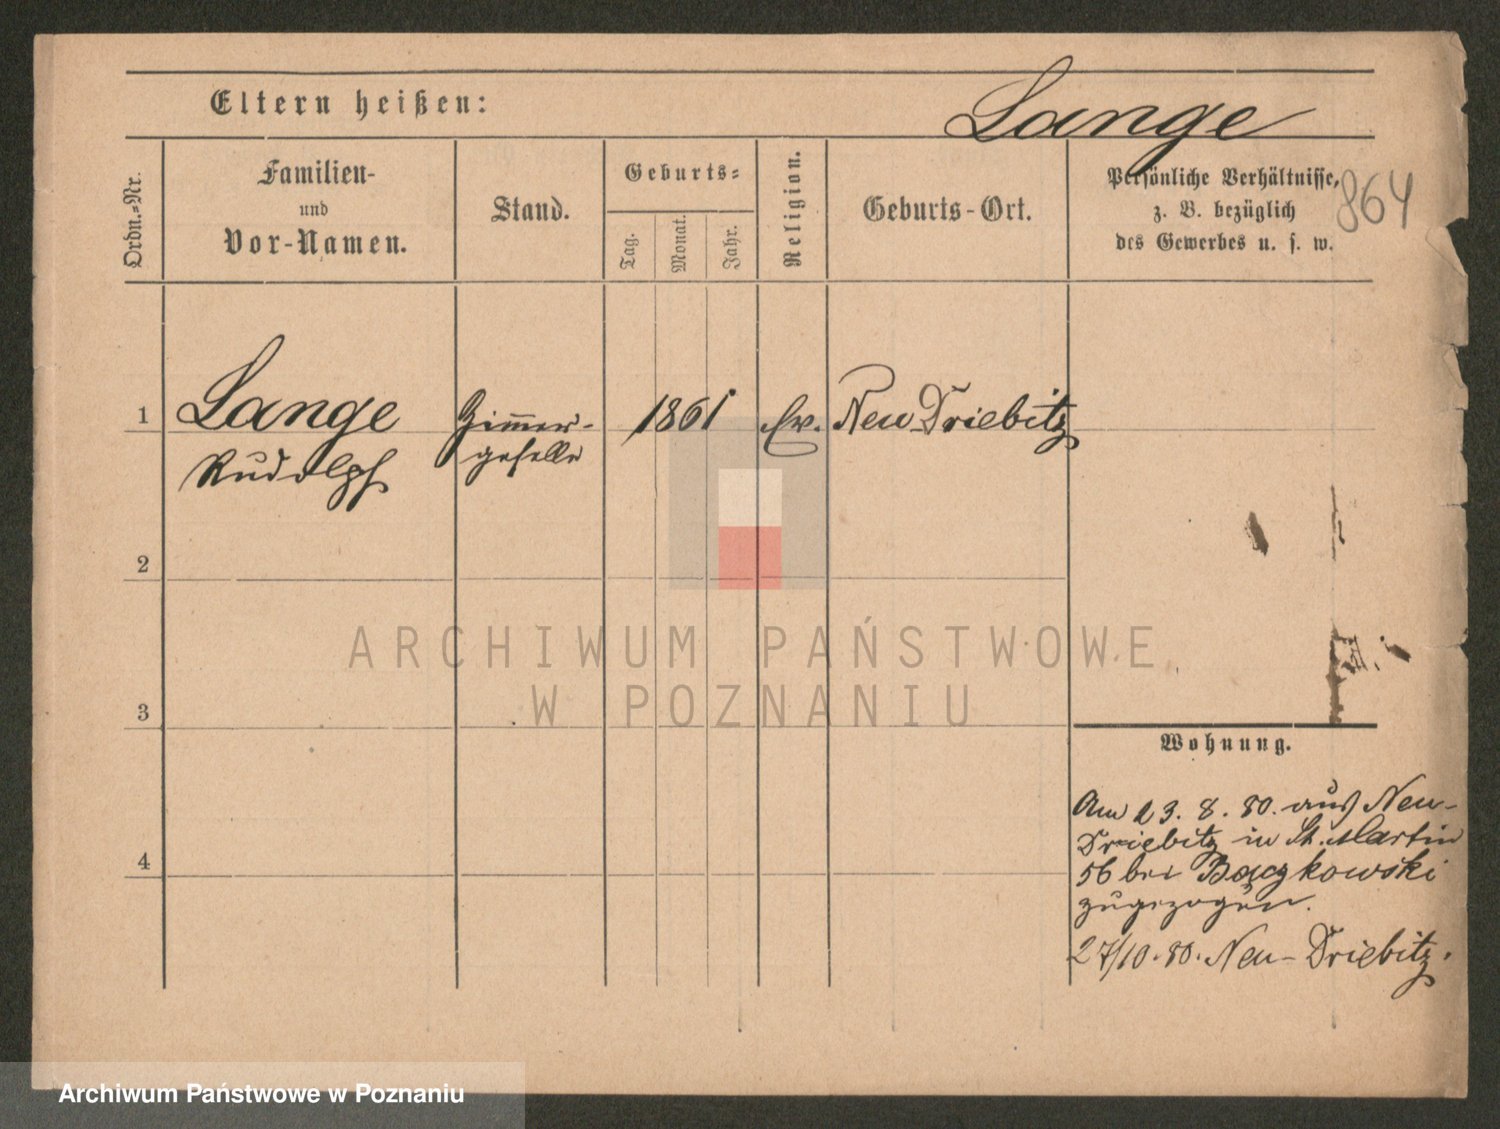 Lange
Eltern heißen:
864
Ordn.-Nr.
Familien-
und
Vor-Namen.
Stand.
Geburts-
Tag.
Monat.
Jahr.
Religion.
Geburts-Ort.
Persönliche Verhältnisse,
z. B. bezüglich
des Gewerbes u. s. w.
1 Lange Zimmer- 1861 Ev. Neu-Driebitz
Rudolph geselle
2
3
4
Wohnung.
Am 23. 8. 80. aus Neu-
Driebitz in St. Martin
56 bei Baczkowski
zugezogen.
27/10. 80. Neu-Driebitz.
ARCHIWUM PAŃSTWOWE
W POZNANIU
Archiwum Państwowe w Poznaniu